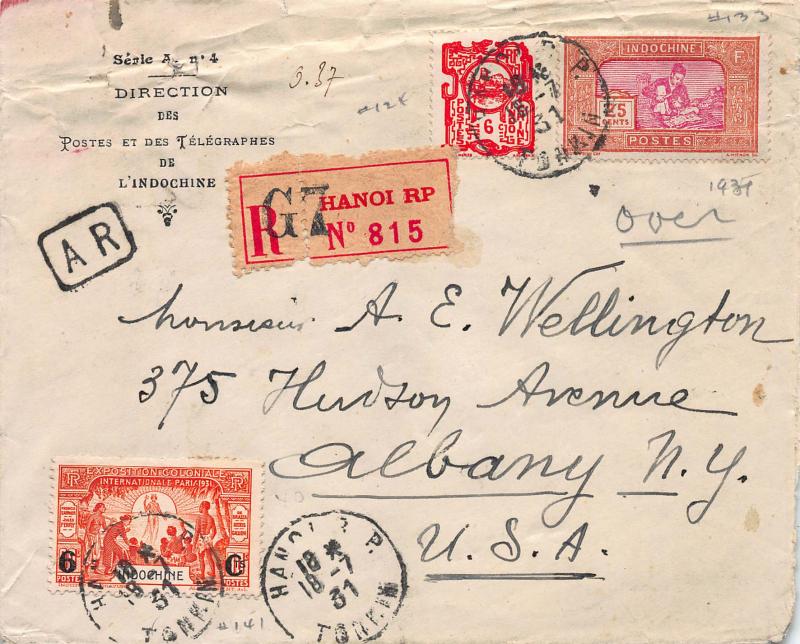 Série A. n° 4
DIRECTION
DES
POSTES ET DES TÉLÉGRAPHES
DE
L'INDOCHINE
0.37
#124
#133
6
INDOCHINE
25
CENTS
POSTES
1931
over
HANOI RP
R
GZ
N° 815
AR
Monsieur A. E. Wellington
375 Hudson Avenue
Albany N.Y.
U.S.A.
EXPOSITION COLONIALE
INTERNATIONALE PARIS 1931
RF
6
C
POSTES
INDOCHINE
POSTES
#141
HANOI R.P.
18 *
18-7
31
TONKIN